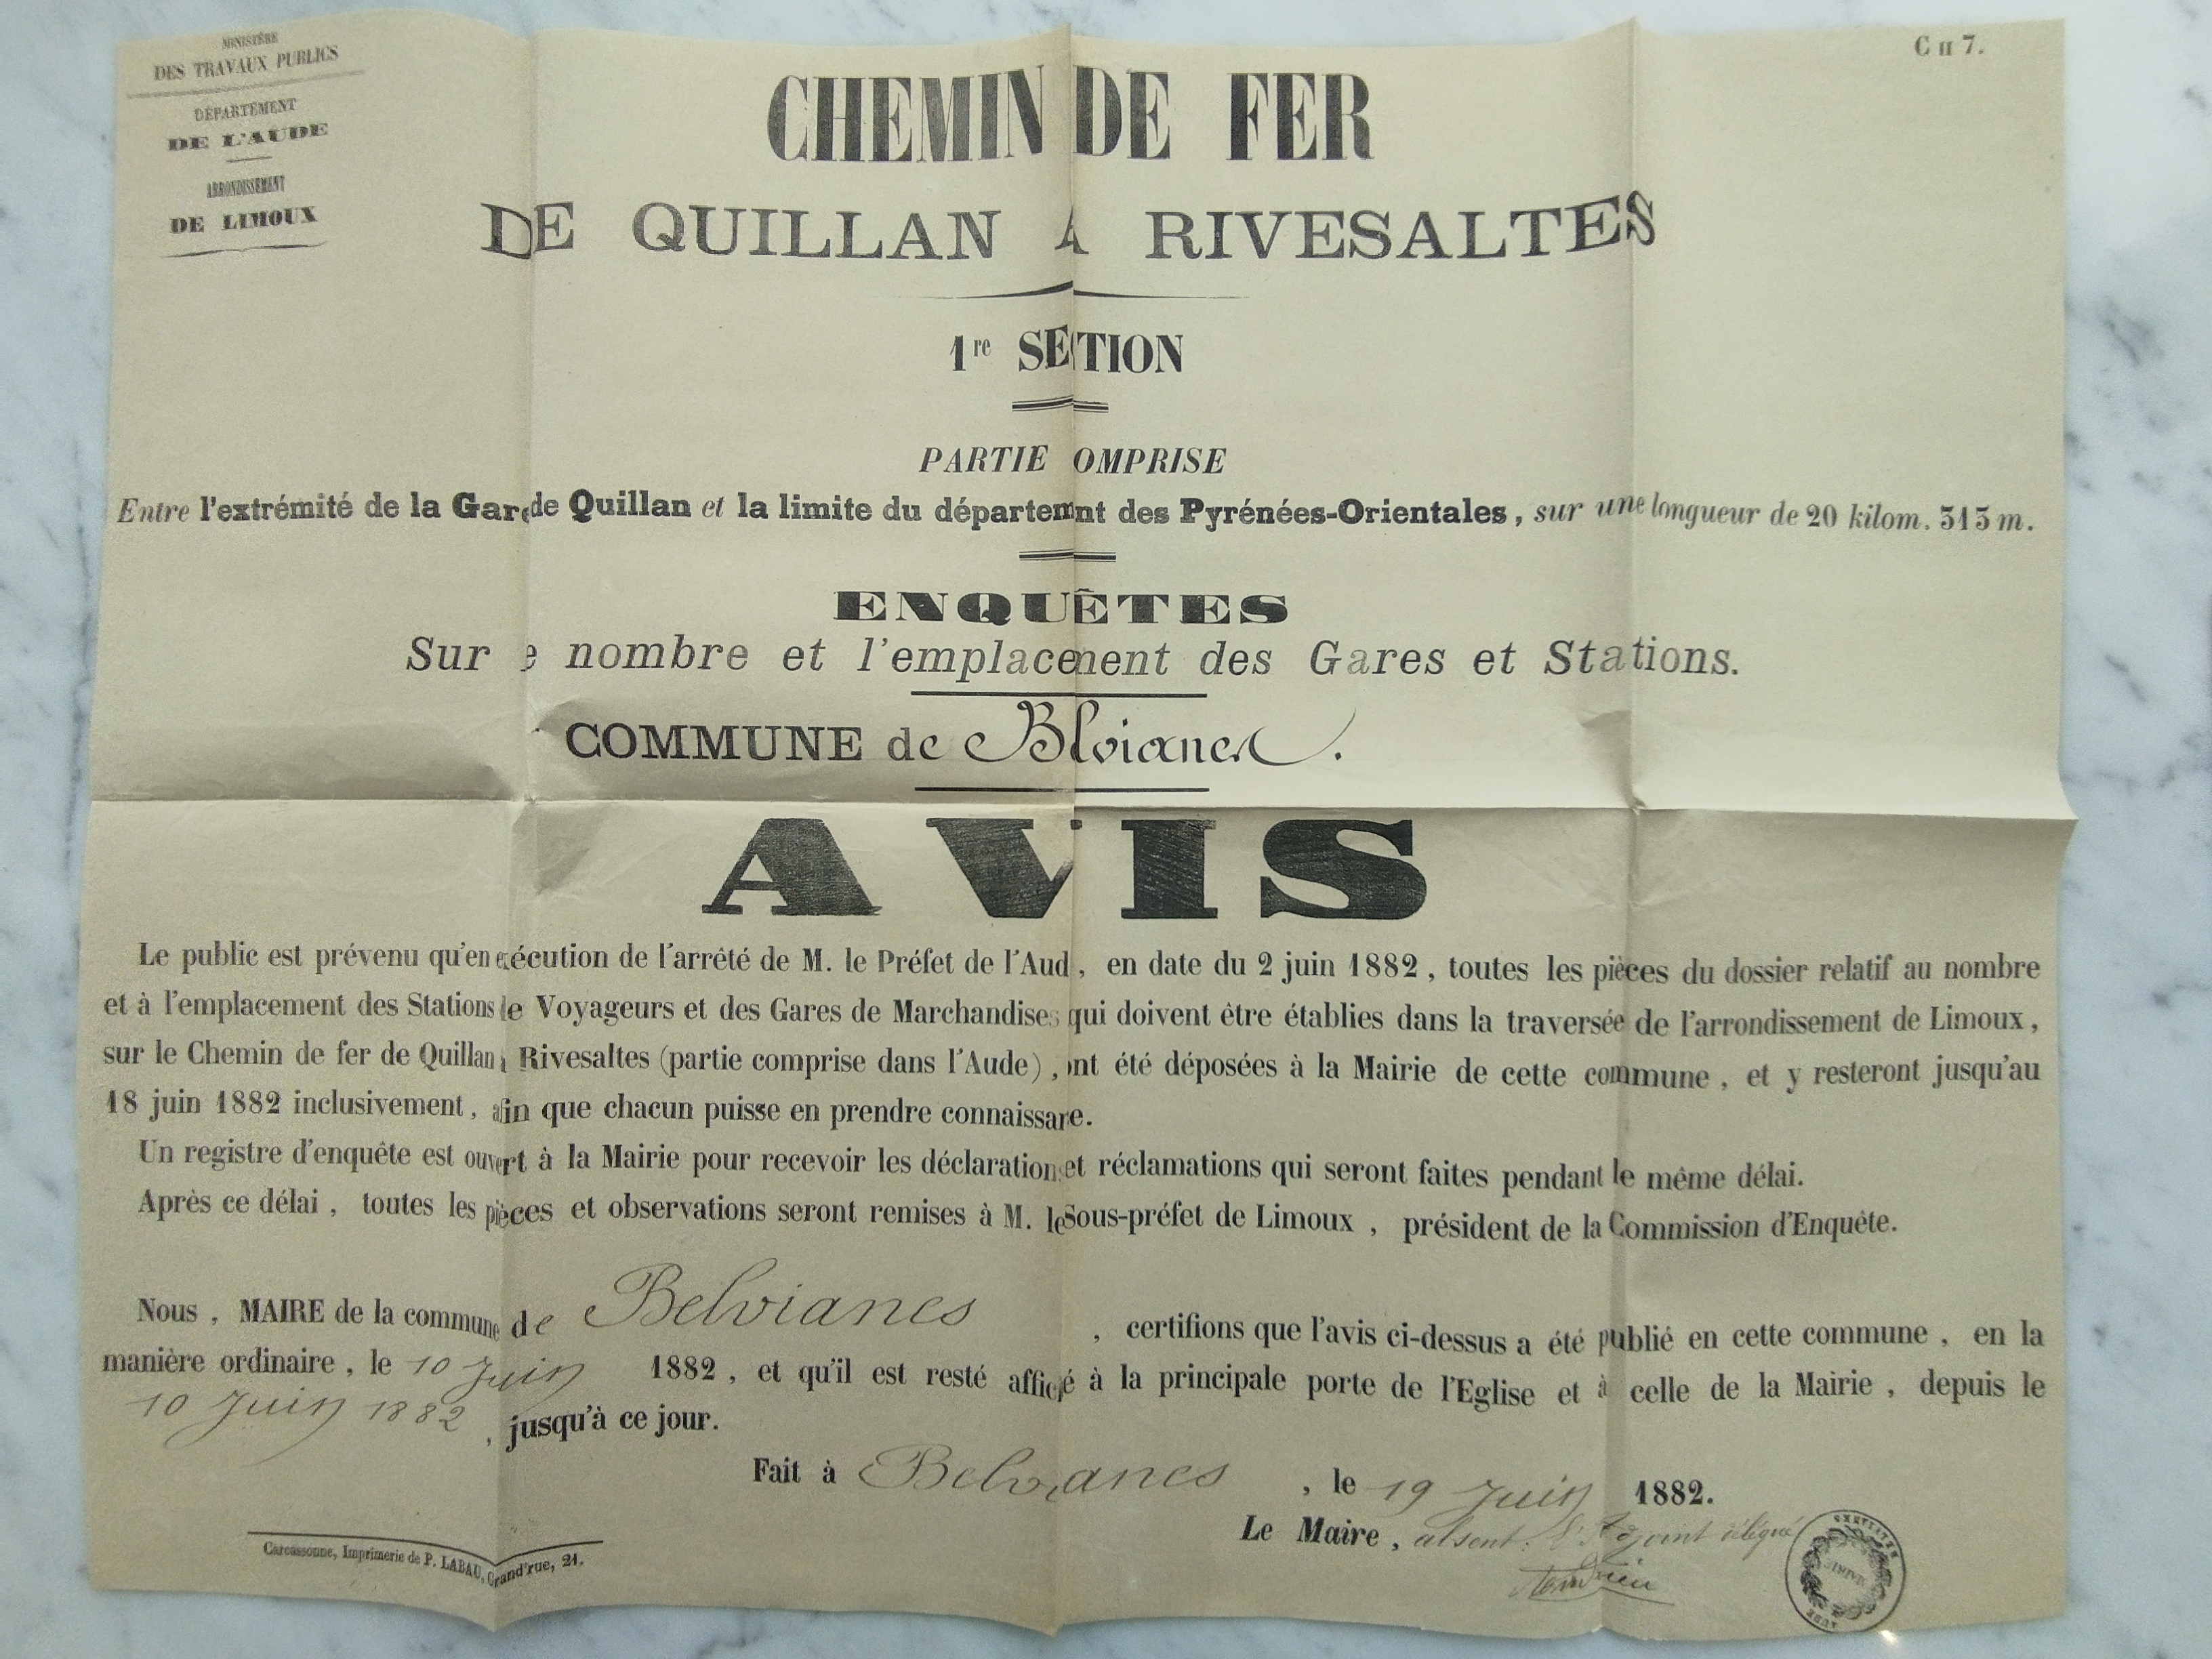 MINISTÈRE
DES TRAVAUX PUBLICS
DÉPARTEMENT
DE L'AUDE
ARRONDISSEMENT
DE LIMOUX
C H 7.
CHEMIN DE FER
DE QUILLAN A RIVESALTES
1re SECTION
PARTIE OMPRISE
Entre l'extrémité de la Gare de Quillan et la limite du département des Pyrénées-Orientales, sur une longueur de 20 kilom. 313 m.
ENQUÊTES
Sur e nombre et l'emplacement des Gares et Stations.
COMMUNE de Blvianes.
AVIS
Le public est prévenu qu'en exécution de l'arrêté de M. le Préfet de l'Aud, en date du 2 juin 1882, toutes les pièces du dossier relatif au nombre
et à l'emplacement des Stations de Voyageurs et des Gares de Marchandises qui doivent être établies dans la traversée de l'arrondissement de Limoux,
sur le Chemin de fer de Quillan à Rivesaltes (partie comprise dans l'Aude), ont été déposées à la Mairie de cette commune, et y resteront jusqu'au
18 juin 1882 inclusivement, afin que chacun puisse en prendre connaissance.
Un registre d'enquête est ouvert à la Mairie pour recevoir les déclarations et réclamations qui seront faites pendant le même délai.
Après ce délai, toutes les pièces et observations seront remises à M. le Sous-préfet de Limoux, président de la Commission d'Enquête.
Nous, MAIRE de la commune de Belvianes, certifions que l'avis ci-dessus a été publié en cette commune, en la
manière ordinaire, le 10 Juin 1882, et qu'il est resté affiché à la principale porte de l'Eglise et à celle de la Mairie, depuis le
10 Juin 1882, jusqu'à ce jour.
Fait à Belvianes, le 19 Juin 1882.
Le Maire, absent: l'Adjoint délégué
Carcassonne, Imprimerie de P. LABAU, Grand'rue, 21.
MAIRIE
AUDE